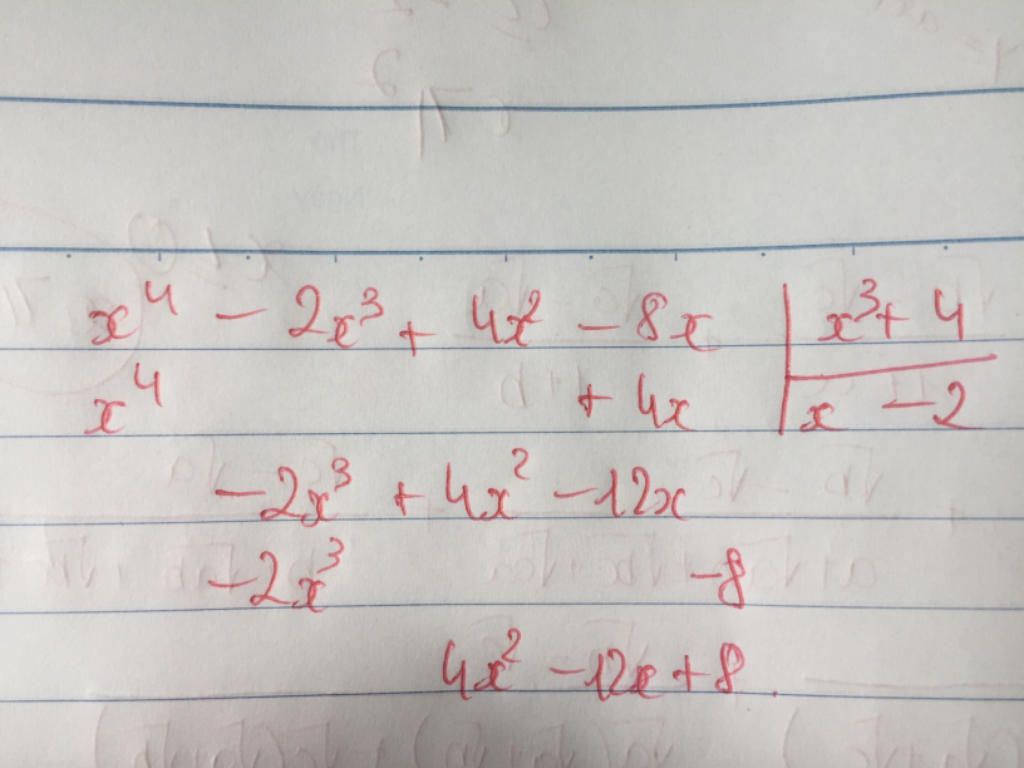 x⁴ - 2x³ + 4x² - 8x | x³ + 4
x⁴ + 4x | x - 2
-2x³ + 4x² - 12x
-2x³ - 8
4x² - 12x + 8.